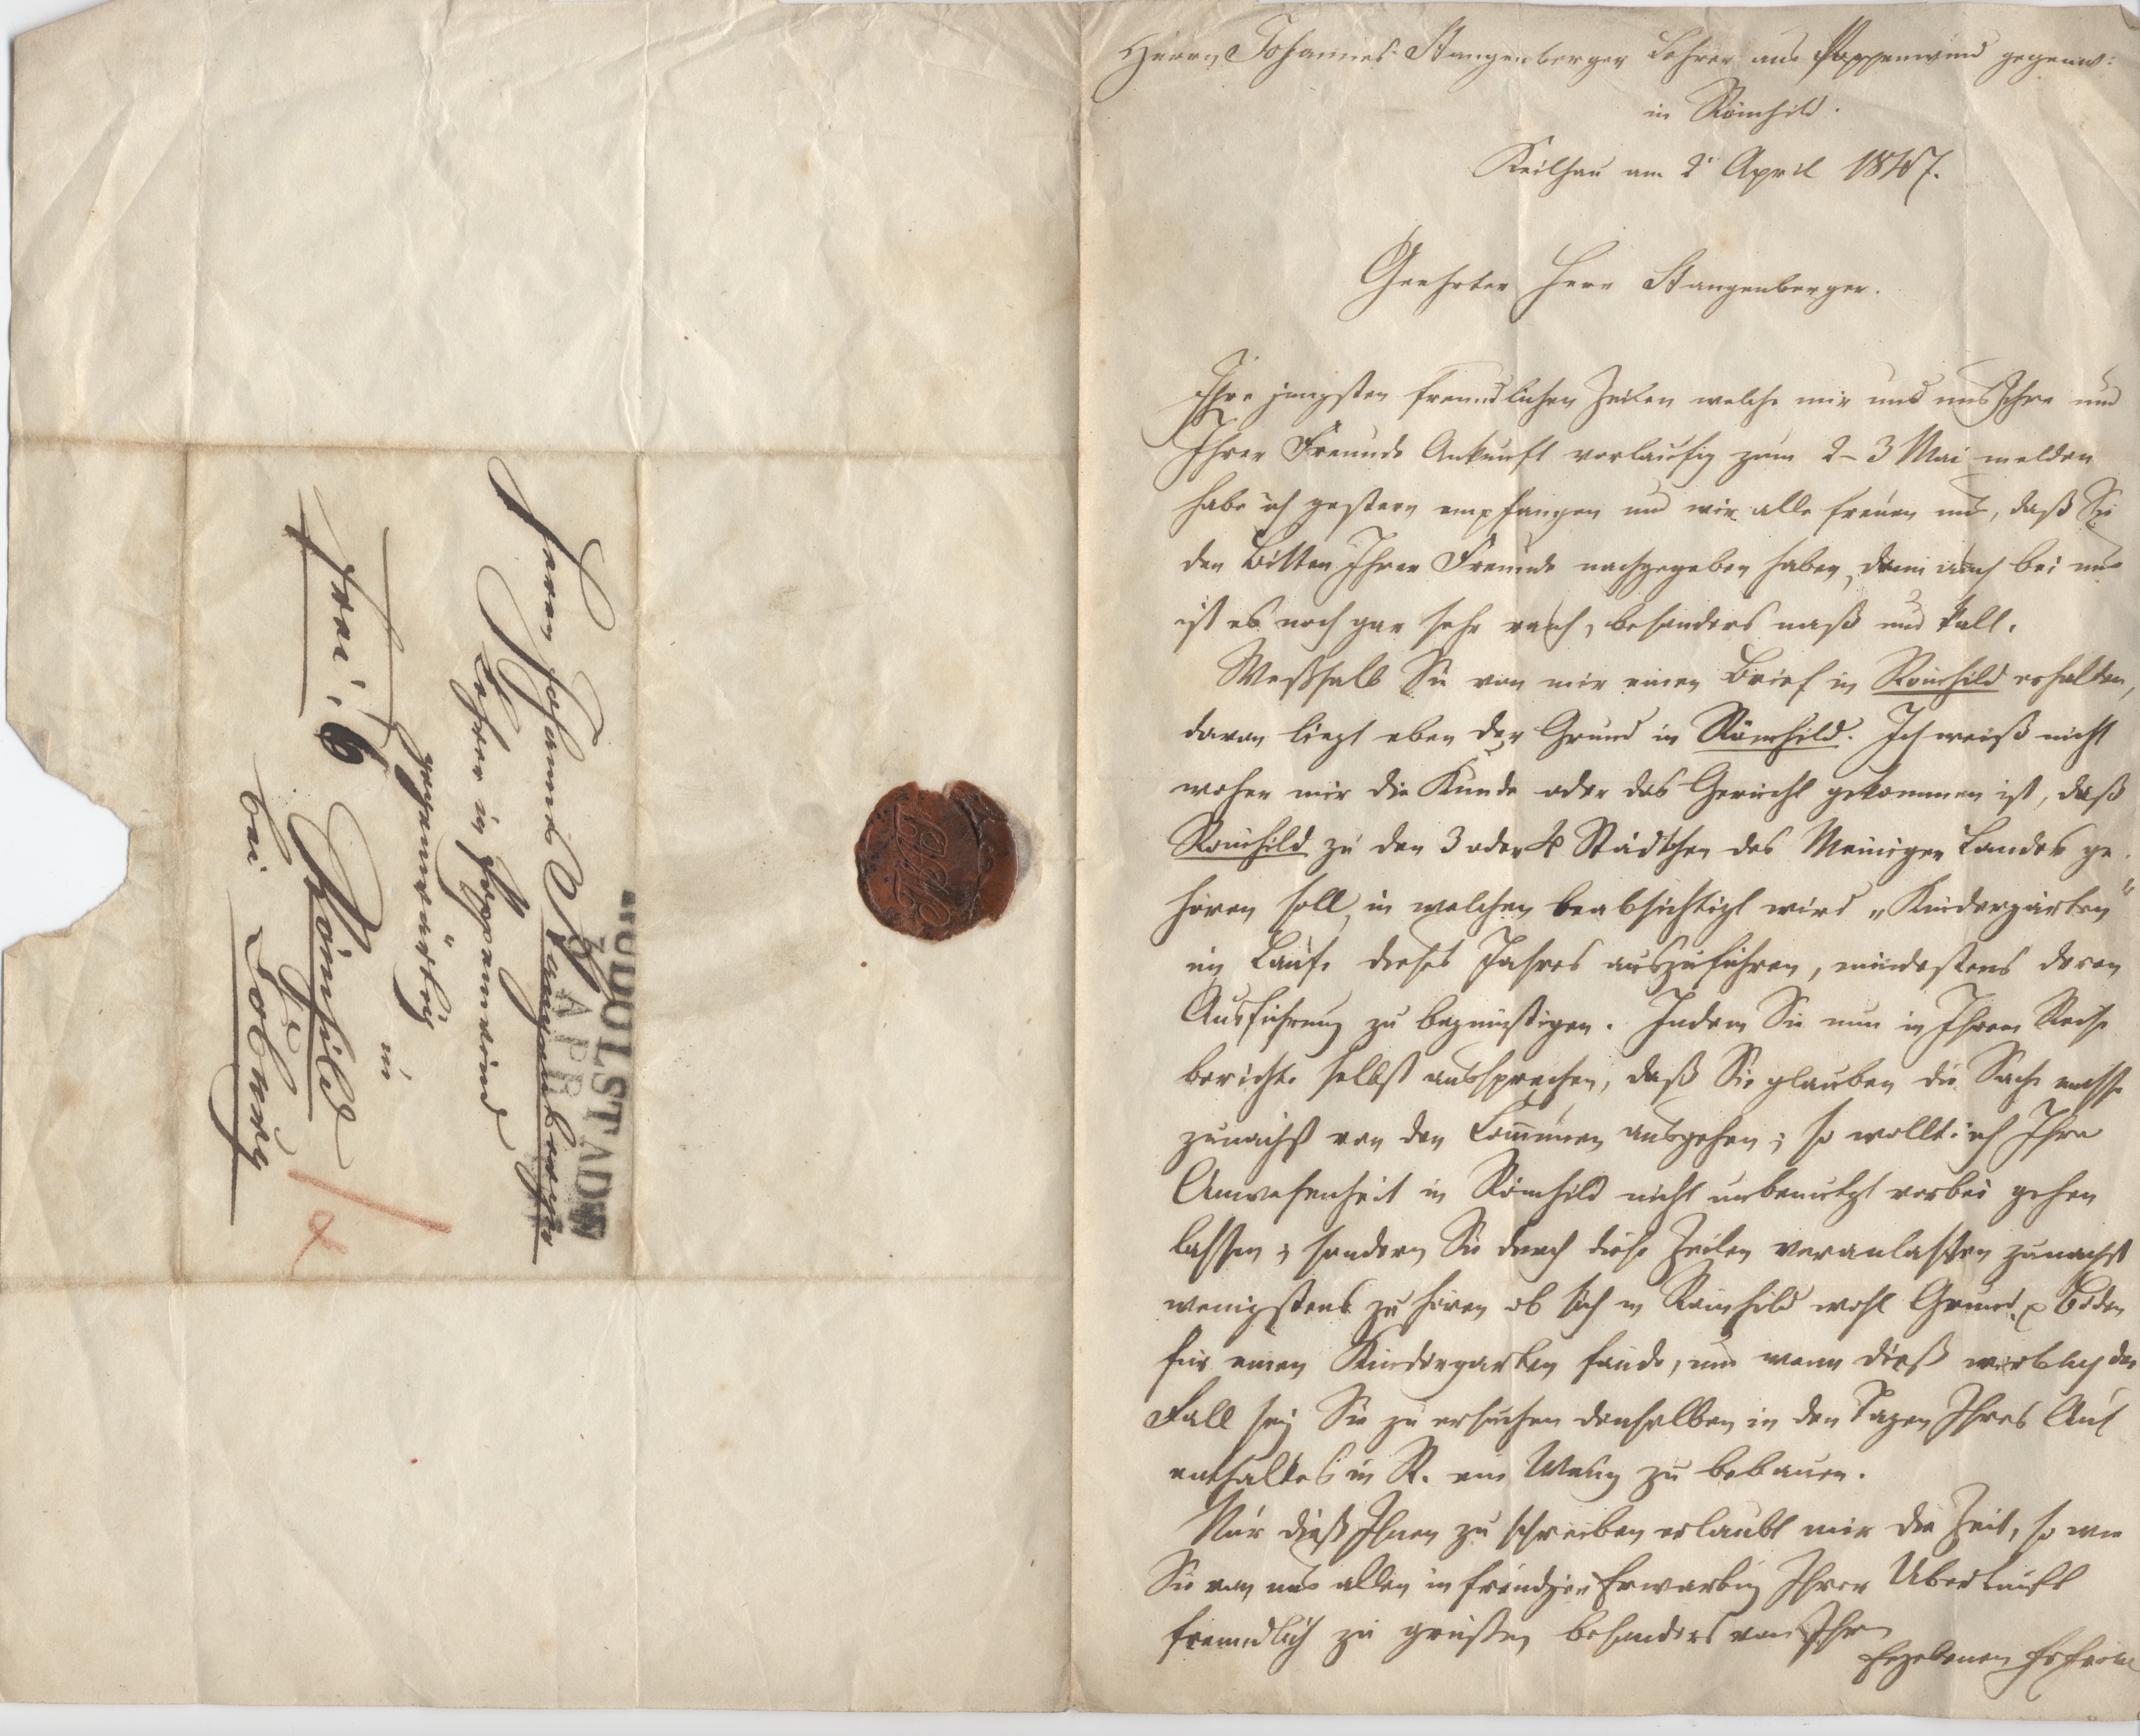 Herrn Johannes Stangenberger Lehrer aus Poppenwind gegenw:
in Römhild.
Keilhau am 2' April 1847.
Geehrter Herr Stangenberger.
Ihre jüngsten freundlichen Zeilen welche mir und uns Ihre und
Ihrer Freunde Ankunft vorläufig zum 2-3 Mai melden
habe ich gestern empfangen und wir alle freuen uns, daß Sie
den Bitten Ihrer Freunde nachgegeben haben, denn auch bei uns
ist es noch gar sehr rauh, besonders naß und kalt.
Weßhalb Sie von mir einen Brief in Römhild erhalten,
davon liegt eben der Grund in Römhild. Ich weiß nicht
woher mir die Kunde oder das Gerücht gekommen ist, daß
Römhild zu den 3 oder 4 Städtchen des Meininger Landes ge-
hören soll, in welchen beabsichtigt wird „Kindergärten"
im Laufe dieses Jahres auszuführen, mindestens deren
Ausführung zu begünstigen. Indem Sie nun in Ihrem Reise
berichte selbst aussprechen, daß Sie glauben die Sache müsse
zunächst von den Communen ausgehen; so wollte ich Ihre
Anwesenheit in Römhild nicht unbenutzt vorbei gehen
lassen; sondern Sie durch diese Zeilen veranlassen zunächst
wenigstens zu hören ob sich in Römhild wohl Grund & Boden
für einen Kindergarten fände, und wenn dieß wirklich der
Fall sey Sie zu ersuchen denselben in den Tagen Ihres Auf
enthaltes in R. ein Wenig zu bebauen.
Nur dieß Ihnen zu schreiben erlaubt mir die Zeit, so wie
Sie von uns allen in freudiger Erwartung Ihrer Überkunft
freundlich zu grüßen besonders von Ihrem
Ergebenen FrFröbel
RUDOLSTADT
APR
Herrn Johannes Stangenberger
Lehrer in Poppenwind
gegenwärtig
in
frei. 6 Römhild
bei Coburg